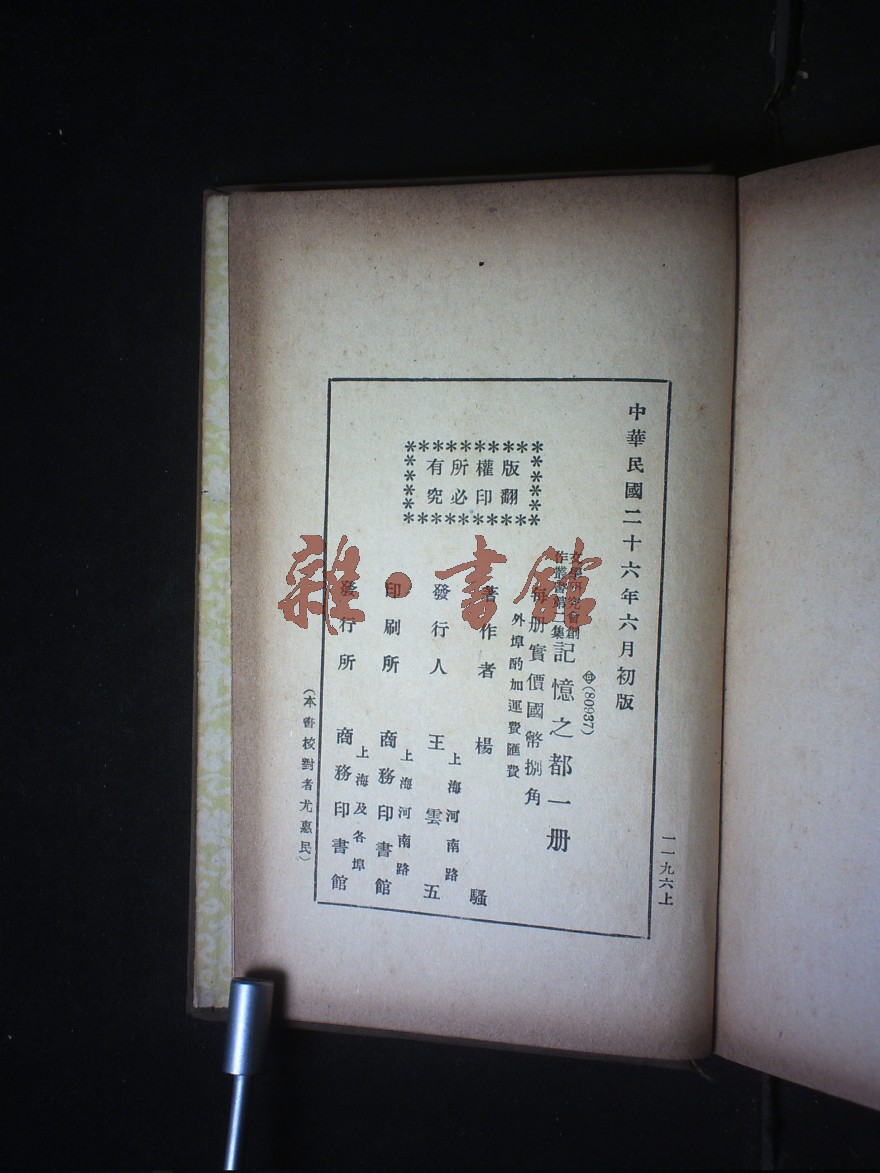 中華民國二十六年六月初版
一一九六上
版權所有
翻印必究
文學研究會創
作叢書第二集
記憶之都一册
(80937)
每册實價國幣捌角
外埠酌加運費匯費
著作者 楊騷
發行人 王雲五
上海河南路
印刷所 商務印書館
上海河南路
發行所 商務印書館
上海及各埠
(本書校對者尤惠民)
雜·書館